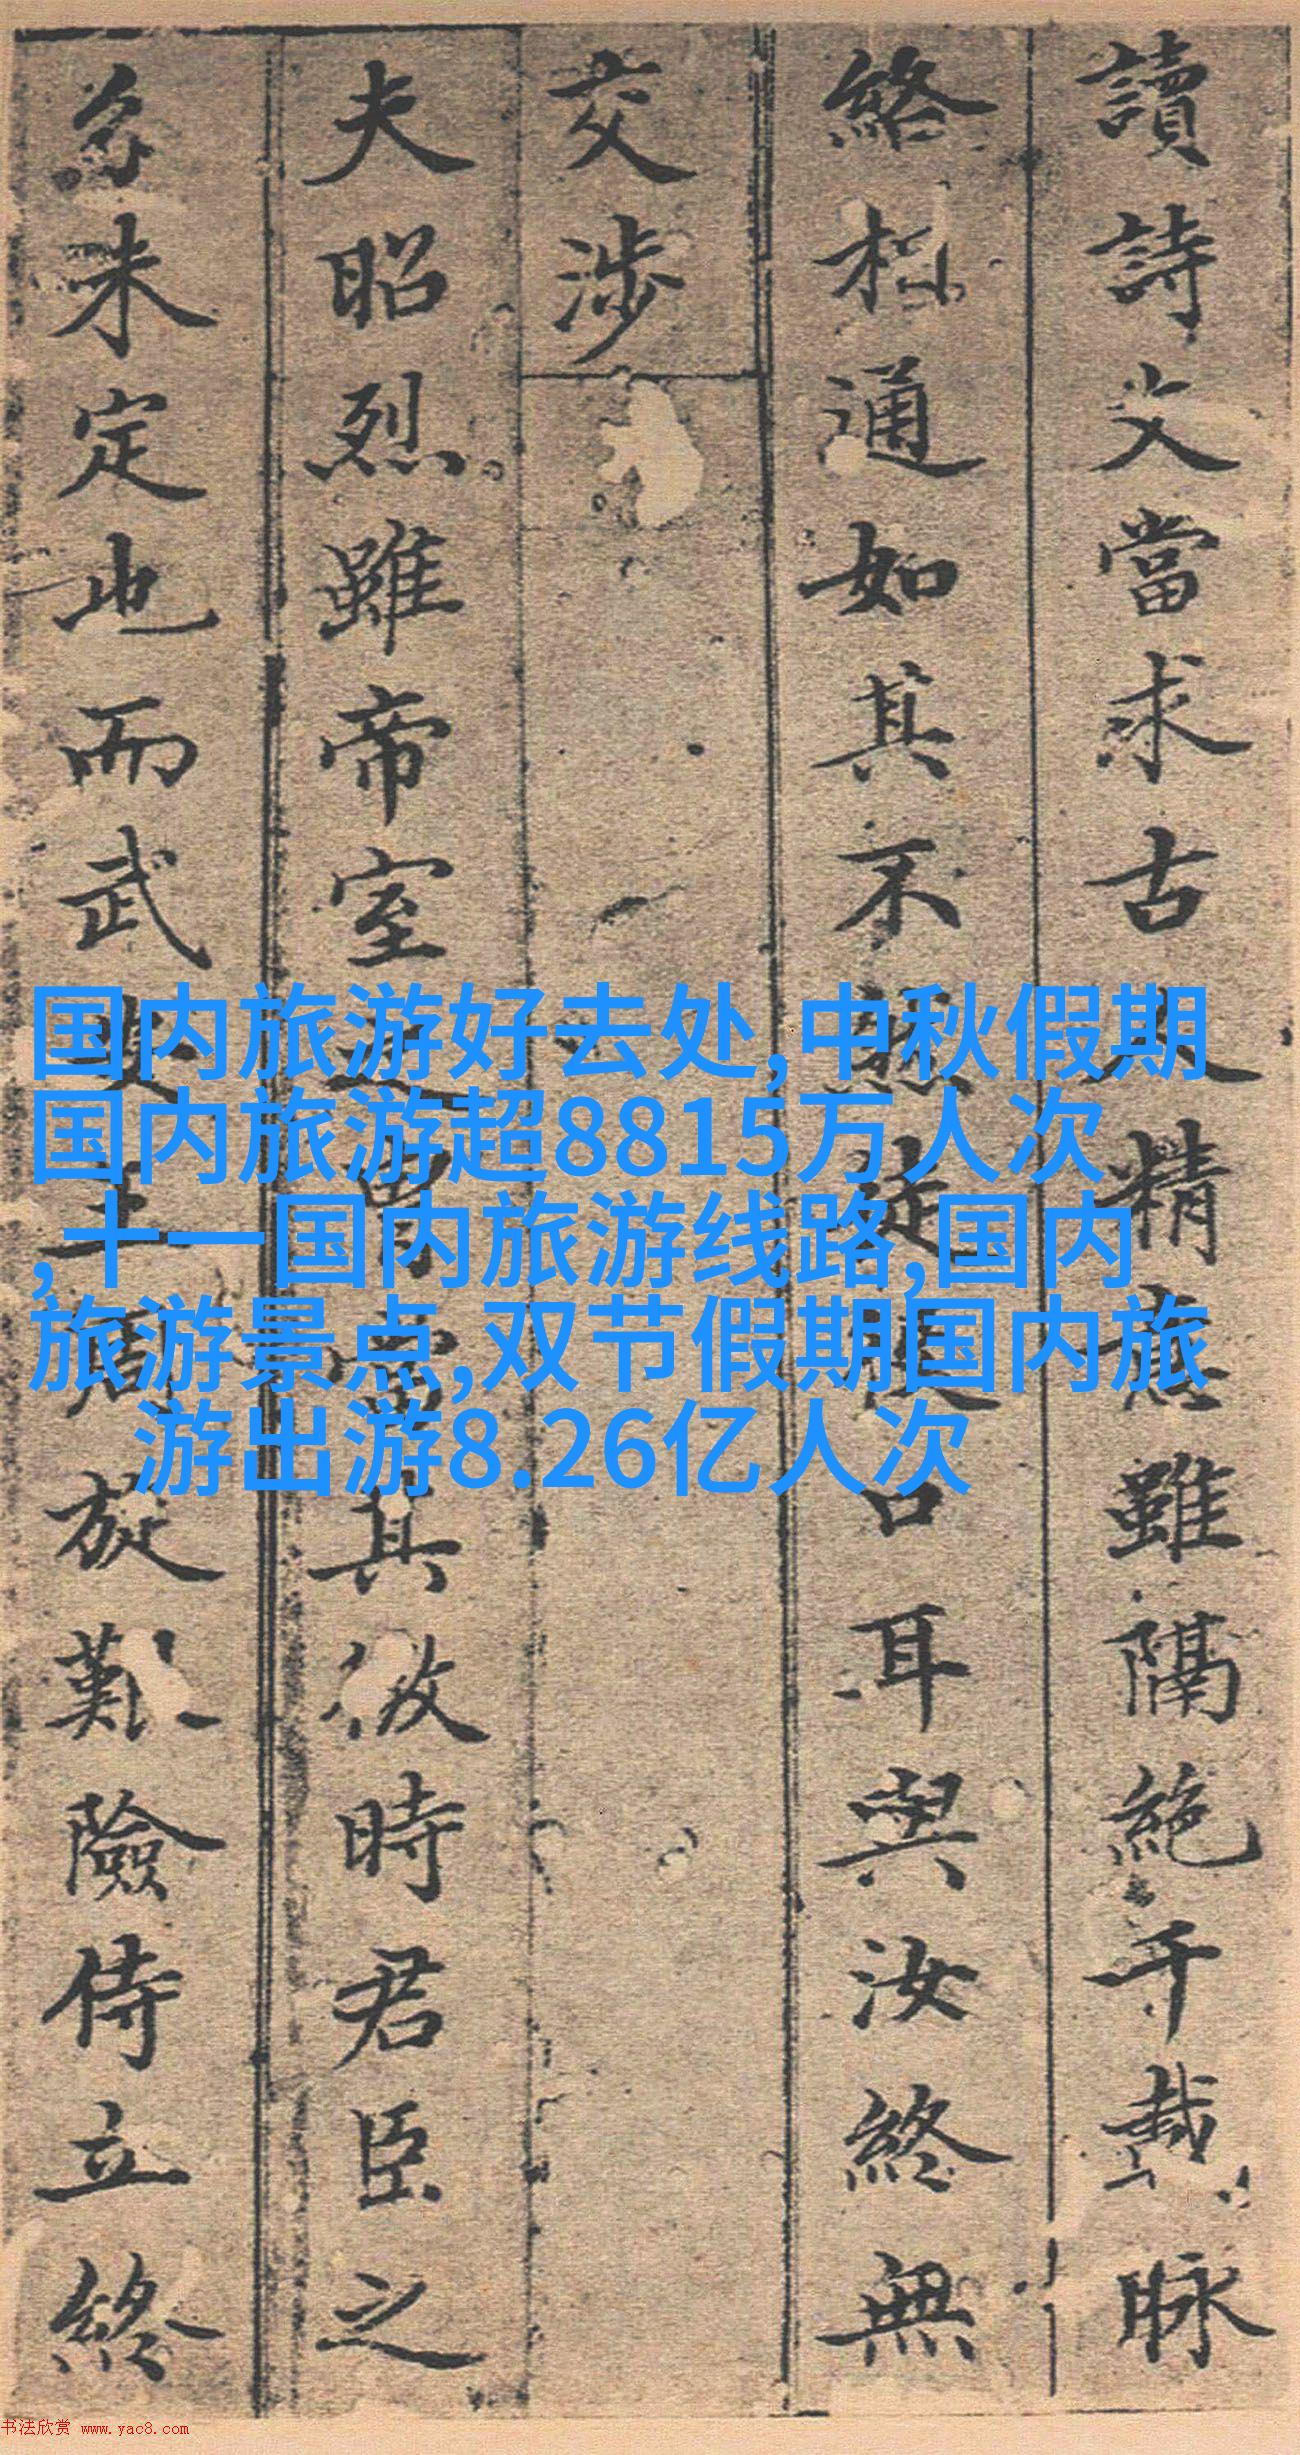 讀詩文當求古人精意雖隔絶千載脉
絡相通如其不然徒口耳與汝終無
交涉
夫昭烈雖帝室之胄當其微時君臣之
分未定也而武周旋艱險侍立終
国内旅游好去处,中秋假期
国内旅游超8815万人次
,十一国内旅游线路,国内
旅游景点,双节假期国内旅
游出游8.26亿人次
书法欣赏 www.yac8.com